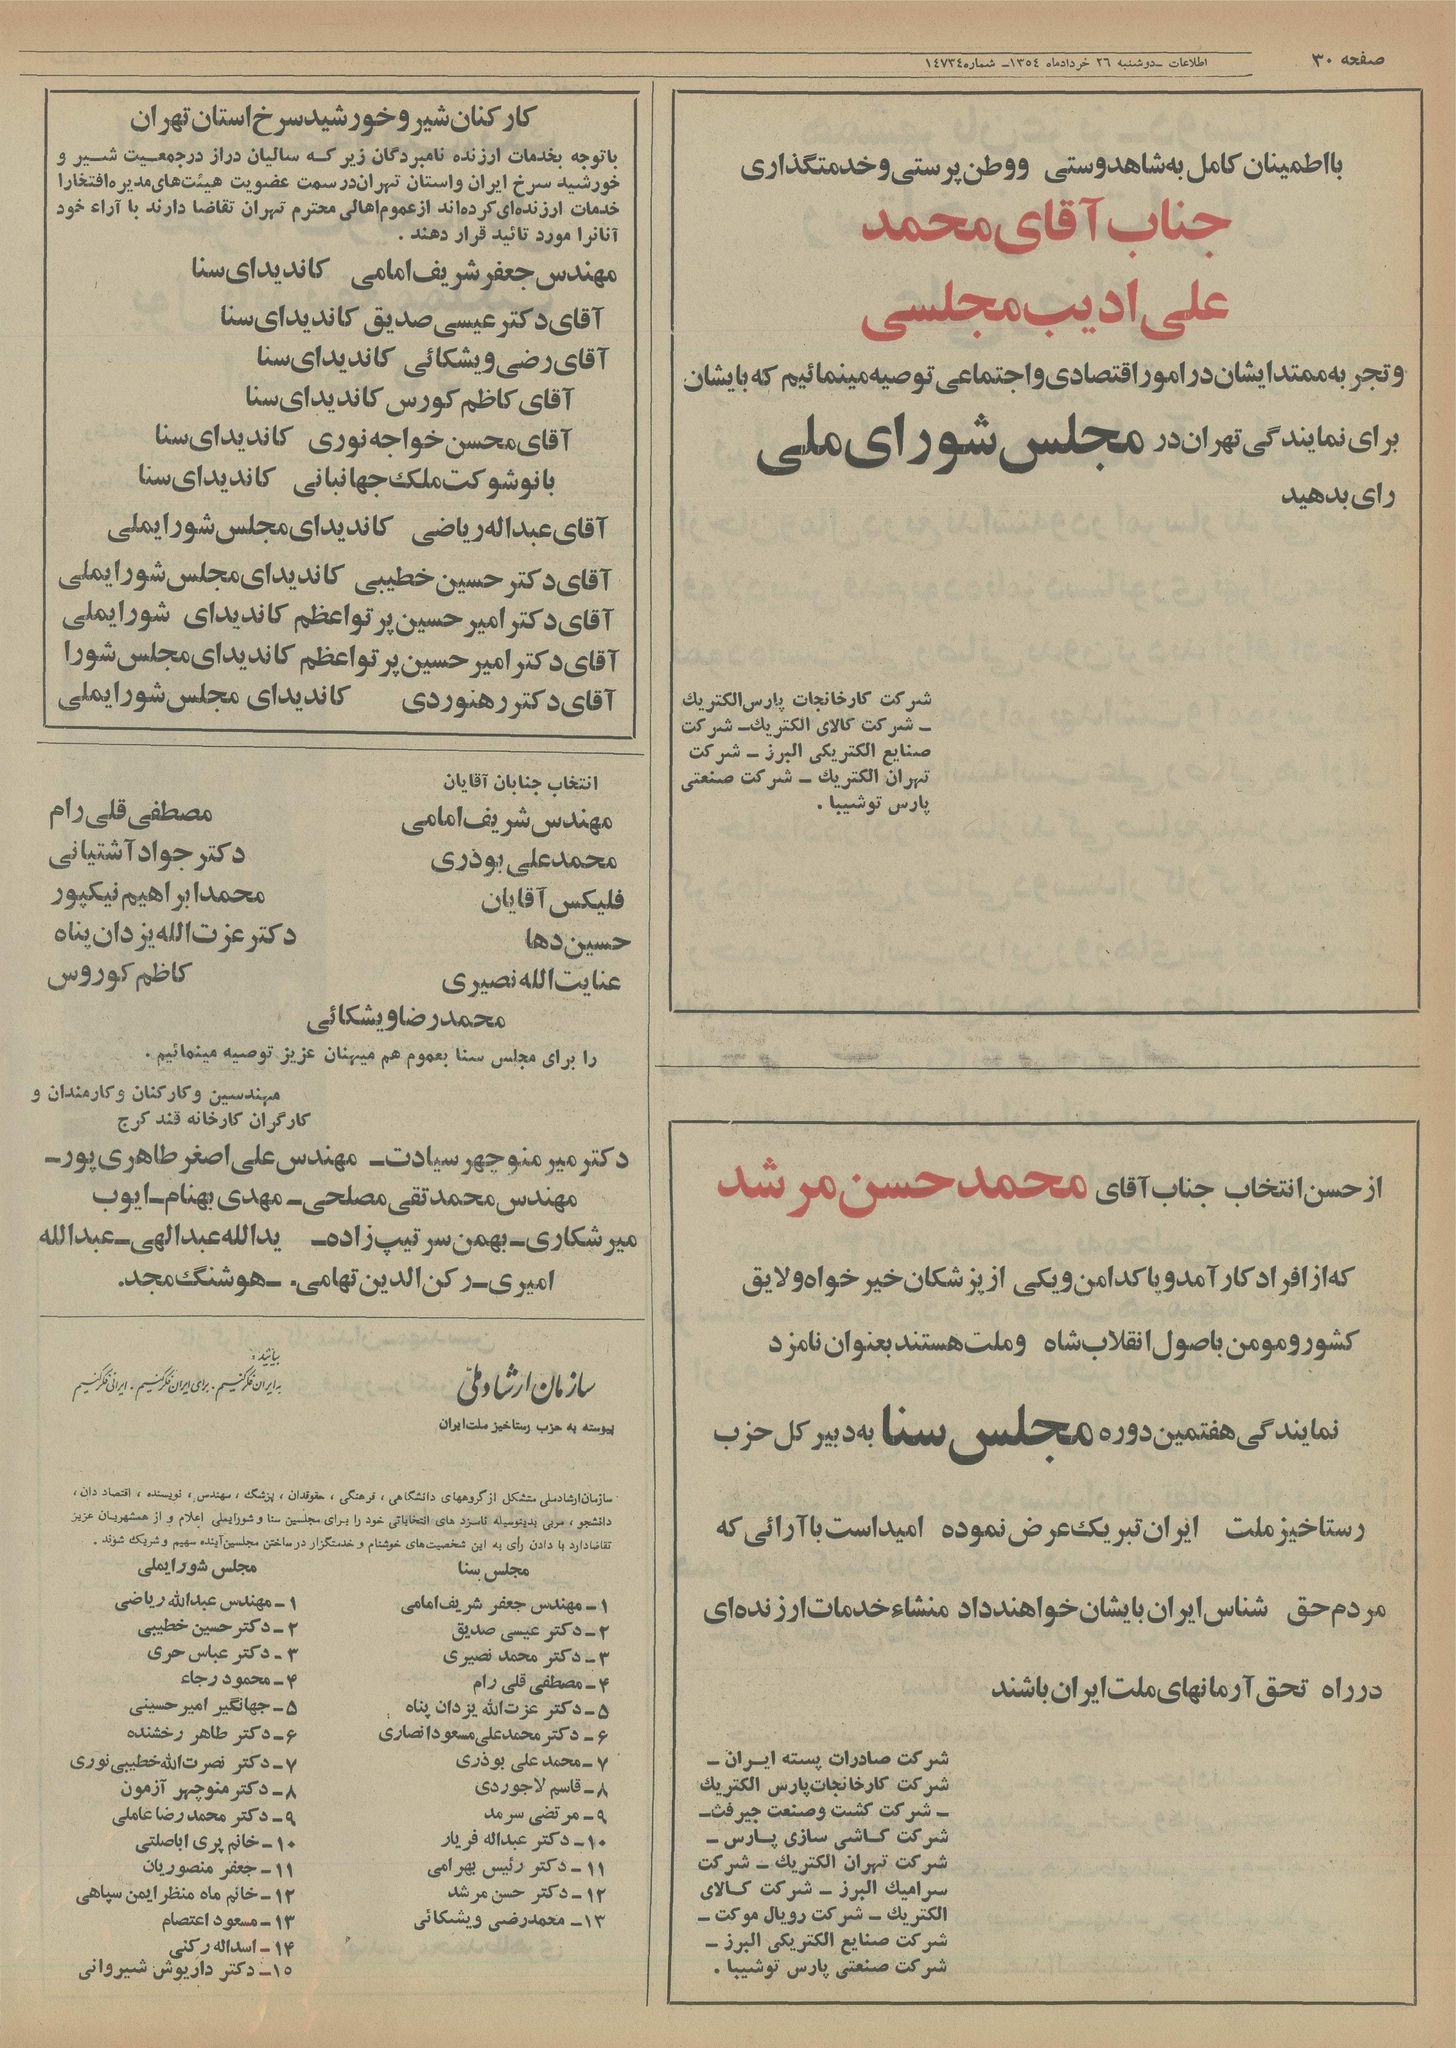 صفحه ۳۰
اطلاعات - دوشنبه ۲۶ خردادماه ۱۳۵۴- شماره ۱۴۷۳۴
بااطمینان کامل به شاهدوستی ووطن پرستی وخدمتگذاری
جناب آقای محمد
علی ادیب مجلسی
وتجربه ممتد ایشان در امور اقتصادی و اجتماعی توصیه مینمائیم که بایشان
برای نمایندگی تهران در مجلس شورای ملی
رای بدهید
شرکت کارخانجات پارس الکتریک
ـ شرکت کالای الکتریک ـ شرکت
صنایع الکتریکی البرز ـ شرکت
تهران الکتریک ـ شرکت صنعتی
پارس توشیبا .
از حسن انتخاب جناب آقای محمد حسن مرشد
که از افراد کار آمد و پاکدامن ویکی از پزشکان خیر خواه ولایق
کشور و مومن باصول انقلاب شاه وملت هستند بعنوان نامزد
نمایندگی هفتمین دوره مجلس سنا به دبیر کل حزب
رستاخیز ملت ایران تبریک عرض نموده امیداست با آرائی که
مردم حق شناس ایران بایشان خواهند داد منشاء خدمات ارزنده ای
درراه تحق آرمانهای ملت ایران باشند
شرکت صادرات پسته ایران ـ
شرکت کارخانجات پارس الکتریک
ـ شرکت کشت وصنعت جیرفت ـ
شرکت کاشی سازی پارس ـ
شرکت تهران الکتریک ـ شرکت
سرامیک البرز ـ شرکت کالای
الکتریک ـ شرکت رویال موکت ـ
شرکت صنایع الکتریکی البرز ـ
شرکت صنعتی پارس توشیبا .
کارکنان شیر و خورشید سرخ استان تهران
باتوجه بخدمات ارزنده نامبردگان زیر که سالیان دراز درجمعیت شیر و
خورشید سرخ ایران واستان تهران در سمت عضویت هیئت های مدیره افتخارا
خدمات ارزنده ای کرده اند از عموم اهالی محترم تهران تقاضا دارند با آراء خود
آنانرا مورد تائید قرار دهند .
مهندس جعفر شریف امامی کاندیدای سنا
آقای دکتر عیسی صدیق کاندیدای سنا
آقای رضی ویشکائی کاندیدای سنا
آقای کاظم کورس کاندیدای سنا
آقای محسن خواجه نوری کاندیدای سنا
بانو شوکت ملک جهانبانی کاندیدای سنا
آقای عبداله ریاضی کاندیدای مجلس شورایملی
آقای دکتر حسین خطیبی کاندیدای مجلس شورایملی
آقای دکتر امیر حسین پرتواعظم کاندیدای شورایملی
آقای دکتر امیر حسین پرتواعظم کاندیدای مجلس شورا
آقای دکتر رهنوردی کاندیدای مجلس شورایملی
انتخاب جنابان آقایان
مهندس شریف امامی مصطفی قلی رام
محمدعلی بوذری دکتر جواد آشتیانی
فلیکس آقایان محمد ابراهیم نیکپور
حسین دها دکتر عزت الله یزدان پناه
عنایت الله نصیری کاظم کوروس
محمدرضا ویشکائی
را برای مجلس سنا بعموم هم میهنان عزیز توصیه مینمائیم .
مهندسین وکارکنان وکارمندان و
کارگران کارخانه قند کرج
دکتر میر منوچهر سیادت ـ مهندس علی اصغر طاهری پور ـ
مهندس محمد تقی مصلحی ـ مهدی بهنام ـ ایوب
میر شکاری ـ بهمن سر تیپ زاده ـ یدالله عبدالهی ـ عبدالله
امیری ـ رکن الدین تهامی. ـ هوشنگ مجد.
سازمان ارشاد ملی
بیائید :
به ایران فکر کنیم . برای ایران فکر کنیم . ایرانی فکر کنیم
پیوسته به حزب رستاخیز ملت ایران
سازمان ارشادملی متشکل از گروههای دانشگاهی ، فرهنگی ، حقوقدان ، پزشک ، مهندس ، نویسنده ، اقتصاد دان ،
دانشجو ، مربی بدینوسیله نامزد های انتخاباتی خود را برای مجلسین سنا و شورایملی اعلام و از همشهریان عزیز
تقاضادارد با دادن رأی به این شخصیت های خوشنام و خدمتگزار در ساختن مجلسین آینده سهیم و شریک شوند .
مجلس سنا
۱ ـ مهندس جعفر شریف امامی
۲ ـ دکتر عیسی صدیق
۳ ـ دکتر محمد نصیری
۴ ـ مصطفی قلی رام
۵ ـ دکتر عزت الله یزدان پناه
۶ ـ دکتر محمدعلی مسعود انصاری
۷ ـ محمد علی بوذری
۸ ـ قاسم لاجوردی
۹ ـ مرتضی سرمد
۱۰ ـ دکتر عبداله فریار
۱۱ ـ دکتر رئیس بهرامی
۱۲ ـ دکتر حسن مرشد
۱۳ ـ محمدرضی ویشکائی
مجلس شورایملی
۱ ـ مهندس عبدالله ریاضی
۲ ـ دکتر حسین خطیبی
۳ ـ دکتر عباس حری
۴ ـ محمود رجاء
۵ ـ جهانگیر امیر حسینی
۶ ـ دکتر طاهر رخشنده
۷ ـ دکتر نصرت الله خطیبی نوری
۸ ـ دکتر منوچهر آزمون
۹ ـ دکتر محمد رضا عاملی
۱۰ ـ خانم پری اباصلتی
۱۱ ـ جعفر منصوریان
۱۲ ـ خانم ماه منظر ایمن سپاهی
۱۳ ـ مسعود اعتصام
۱۴ ـ اسداله رکنی
۱۵ ـ دکتر داریوش شیروانی